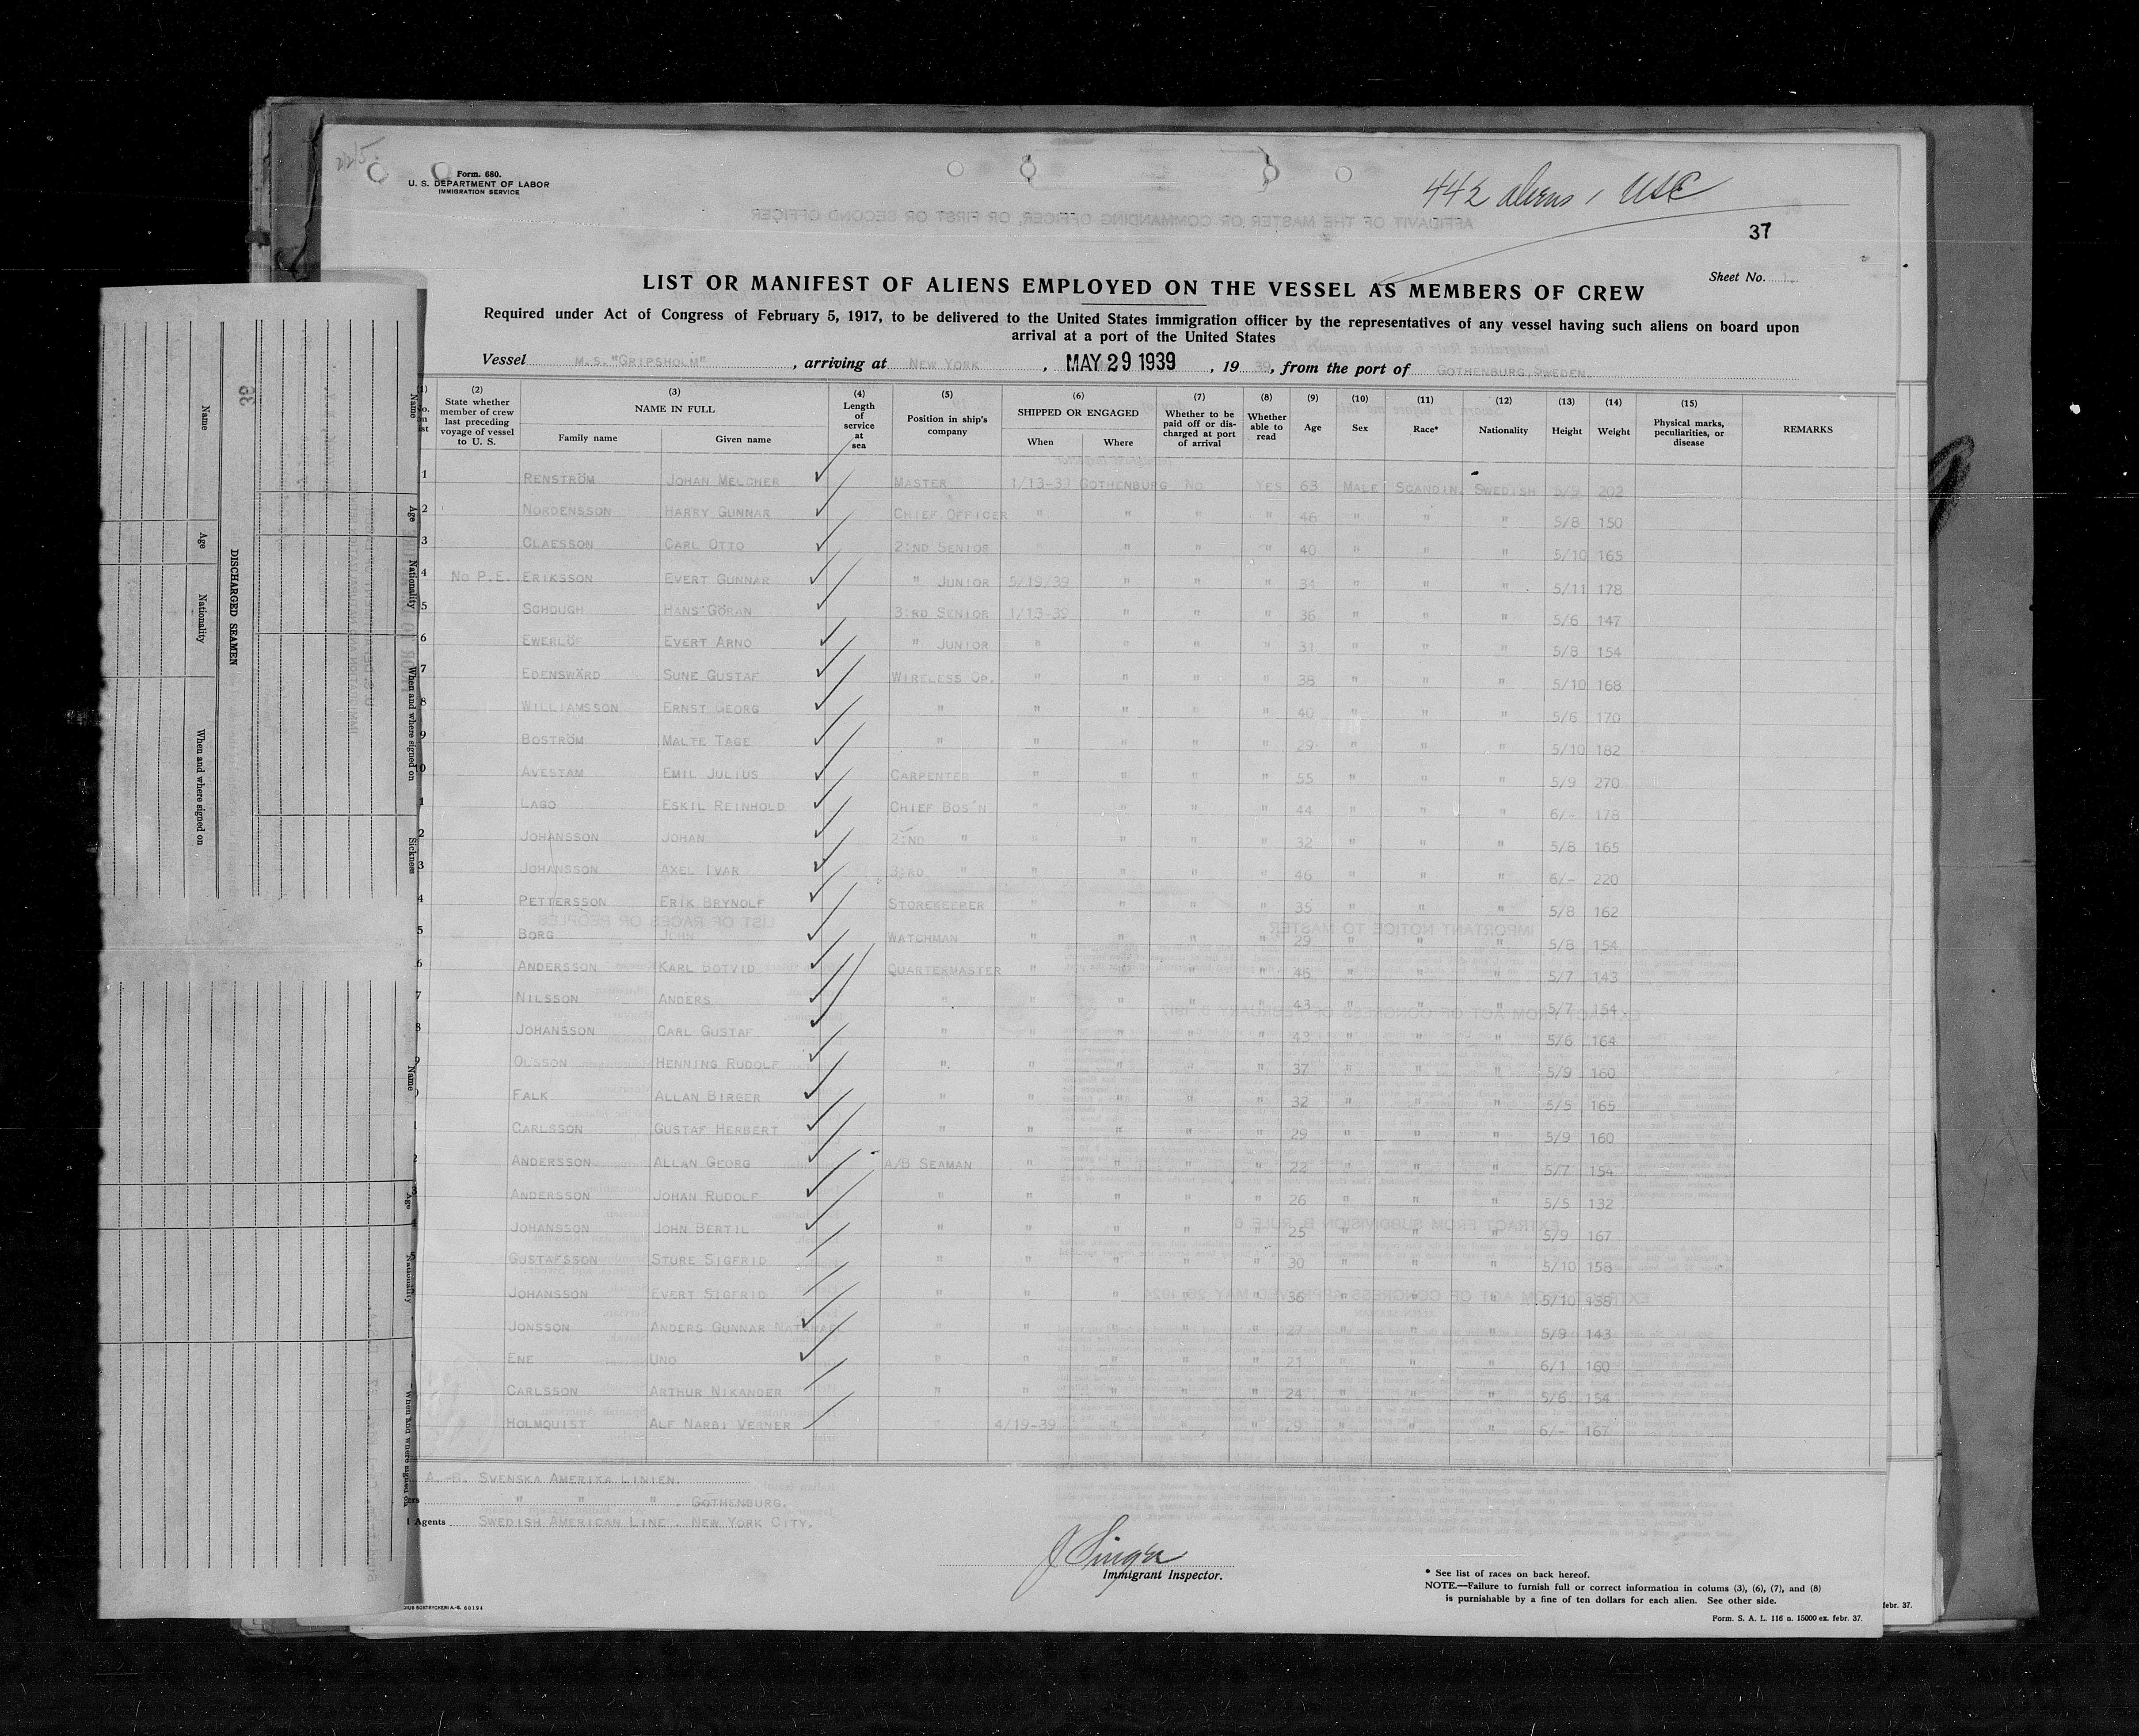 Form. 680.
U. S. DEPARTMENT OF LABOR
IMMIGRATION SERVICE
442 aliens 1 USC
37
Sheet No. 1
LIST OR MANIFEST OF ALIENS EMPLOYED ON THE VESSEL AS MEMBERS OF CREW
Required under Act of Congress of February 5, 1917, to be delivered to the United States immigration officer by the representatives of any vessel having such aliens on board upon
arrival at a port of the United States
Vessel M.S. "GRIPSHOLM", arriving at NEW YORK, MAY 29 1939, 19 39, from the port of GOTHENBURG, SWEDEN.
(2) State whether member of crew last preceding voyage of vessel to U. S.
(3) NAME IN FULL Family name Given name
(4) Length of service at sea
(5) Position in ship's company
(6) SHIPPED OR ENGAGED When Where
(7) Whether to be paid off or discharged at port of arrival
(8) Whether able to read
(9) Age
(10) Sex
(11) Race*
(12) Nationality
(13) Height
(14) Weight
(15) Physical marks, peculiarities, or disease
REMARKS
1 RENSTRÖM JOHAN MELCHER MASTER 1/13-39 GOTHENBURG NO YES 63 MALE SCANDIN. SWEDISH 5/9 202
2 NORDENSSON HARRY GUNNAR CHIEF OFFICER " " " " 46 " " " 5/8 150
3 CLAESSON CARL OTTO 2:ND SENIOR " " " 40 " " " 5/10 165
4 NO P.E. ERIKSSON EVERT GUNNAR " JUNIOR 5/19/39 " " " 34 " " 5/11 178
5 SCHOUGH HANS GÖRAN 3:RD SENIOR 1/13-39 " " " 36 " " " 5/6 147
6 EWERLÖF EVERT ARNO " JUNIOR " " " " 31 " " " 5/8 154
7 EDENSWÄRD SUNE GUSTAF WIRELESS OP. " " " " 38 " " " 5/10 168
8 WILLIAMSSON ERNST GEORG " " " " " 40 " " 5/6 170
9 BOSTRÖM MALTE TAGE " " " " " 29 " " " 5/10 182
0 AVESTAM EMIL JULIUS CARPENTER " " " " 55 " " " 5/9 270
1 LAGO ESKIL REINHOLD CHIEF BOS'N " " " " 44 " " " 6/- 178
2 JOHANSSON JOHAN 2:ND " " " " " 32 " " " 5/8 165
3 JOHANSSON AXEL IVAR 3:RD " " " " " 46 " " " 6/- 220
4 PETTERSSON ERIK BRYNOLF STOREKEEPER " " " " 35 " " " 5/8 162
5 BORG JOHN WATCHMAN " " " " 29 " " " 5/8 154
6 ANDERSSON KARL BOTVID QUARTERMASTER " " " " 46 " " " 5/7 143
7 NILSSON ANDERS " " " " " 43 " " " 5/7 154
8 JOHANSSON CARL GUSTAF " " " " " 43 " " " 5/6 164
9 OLSSON HENNING RUDOLF " " " " " 37 " " " 5/9 160
FALK ALLAN BIRGER " " " " " 32 " " " 5/5 165
1 CARLSSON GUSTAF HERBERT " " " " " 29 " " " 5/9 160
2 ANDERSSON ALLAN GEORG A/B SEAMAN " " " " 22 " " " 5/7 154
3 ANDERSSON JOHAN RUDOLF " " " " " 26 " " " 5/5 132
4 JOHANSSON JOHN BERTIL " " " " " 25 " " " 5/9 167
5 GUSTAFSSON STURE SIGFRID " " " " " 30 " " " 5/10 158
JOHANSSON EVERT SIGFRID " " " " " 36 " " " 5/10 158
JONSSON ANDERS GUNNAR NATANAEL " " " " " 27 " " " 5/9 143
ENE UNO " " " " " 21 " " " 6/1 160
CARLSSON ARTHUR NIKANDER " " " " " 24 " " " 5/6 154
HOLMQUIST ALF NARBI VERNER " 4/19-39 " " " 29 " " " 6/- 167
A.-B. SVENSKA AMERIKA LINIEN.
ers " " " GOTHENBURG.
l Agents SWEDISH AMERICAN LINE. NEW YORK CITY.
J Singer
Immigrant Inspector.
* See list of races on back hereof.
NOTE.—Failure to furnish full or correct information in colums (3), (6), (7), and (8)
is punishable by a fine of ten dollars for each alien. See other side.
Form. S. A. L. 116 n. 15000 ex. febr. 37.
febr. 37.
DISCHARGED SEAMEN
Name
Age
Nationality
When and where signed on
Name
Age
Nationality
When and where signed on
Sickness
Name
Age
Nationality
When and where signed on